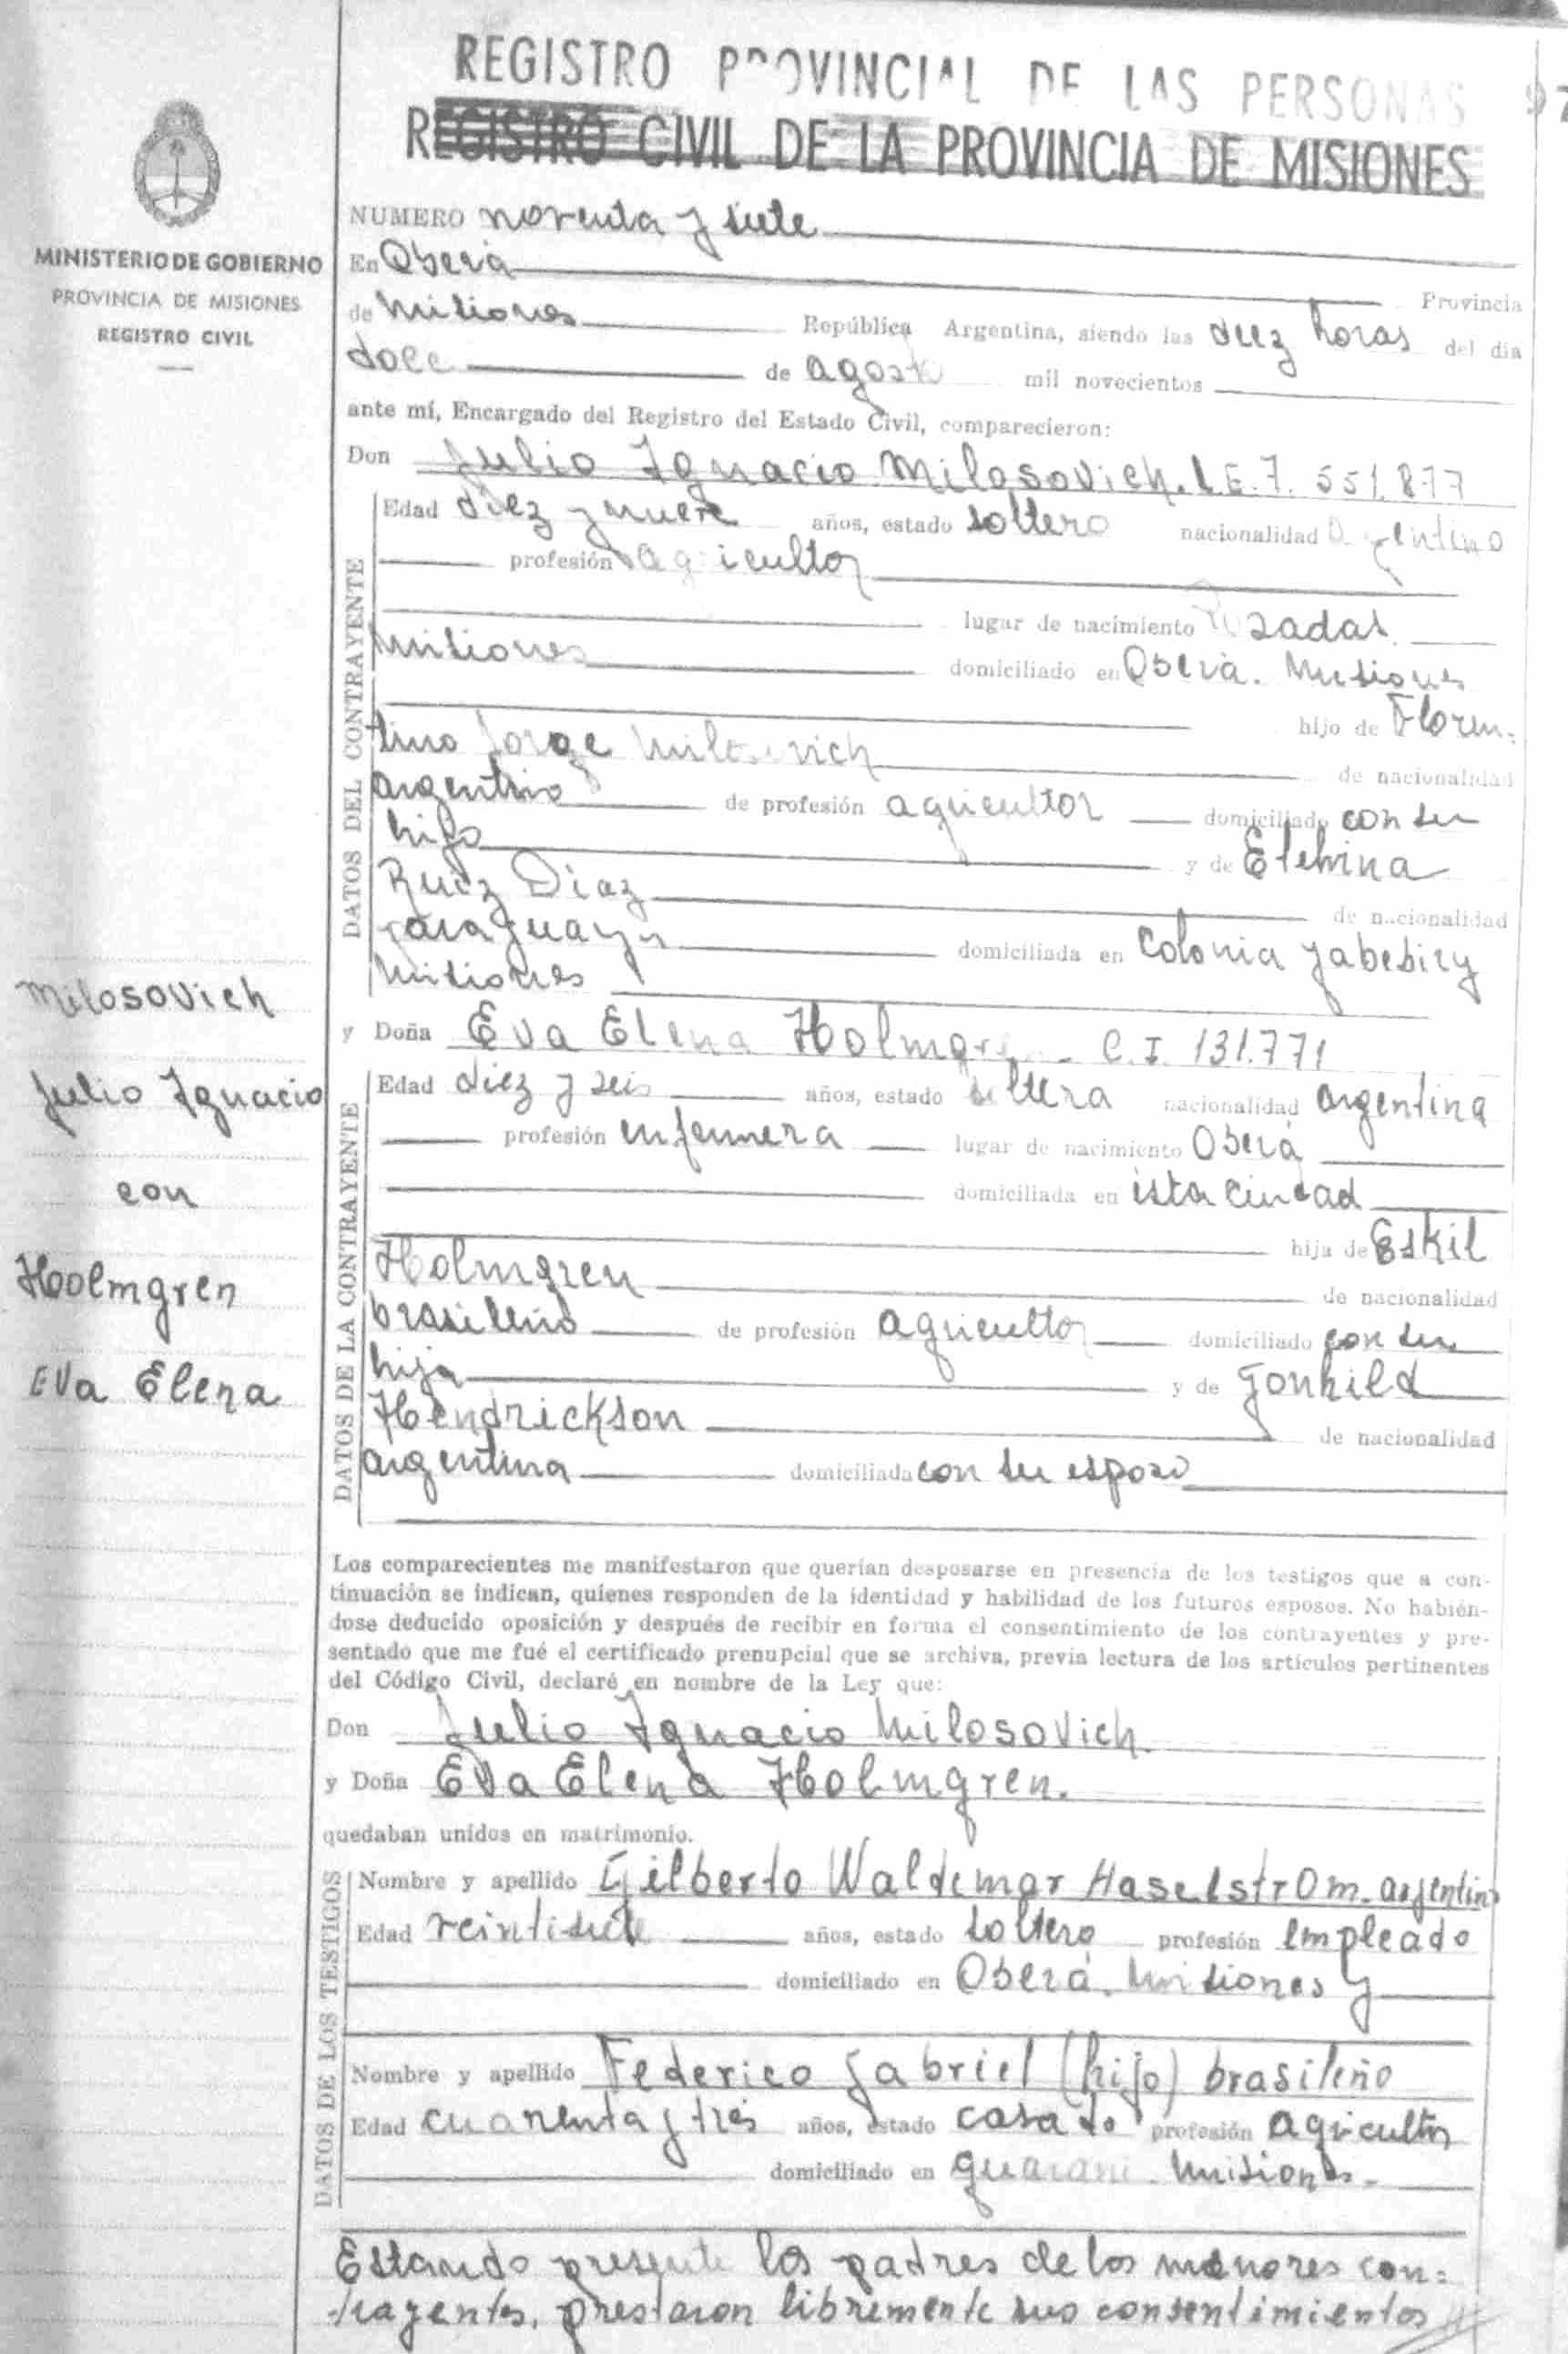 REGISTRO PROVINCIAL DE LAS PERSONAS 97
REGISTRO CIVIL DE LA PROVINCIA DE MISIONES
MINISTERIO DE GOBIERNO
PROVINCIA DE MISIONES
REGISTRO CIVIL
NUMERO noventa y siete
En Oberá Provincia
de Misiones República Argentina, siendo las diez horas del día
doce de agosto mil novecientos
ante mí, Encargado del Registro del Estado Civil, comparecieron:
Don Julio Ignacio Milosovich. L.E. 7.551.877
DATOS DEL CONTRAYENTE
Edad diez y nueve años, estado soltero nacionalidad argentino
profesión agricultor
lugar de nacimiento Posadas.
Misiones domiciliado en Oberá. Misiones
hijo de Floren-
tino Jorge Milosovich de nacionalidad
argentino de profesión agricultor domiciliado con su
hijo y de Etelvina
Ruiz Diaz de nacionalidad
paraguaya domiciliada en Colonia Yabebiry
Misiones
y Doña Eva Elena Holmgren - C.I. 131.771
DATOS DE LA CONTRAYENTE
Edad diez y seis años, estado soltera nacionalidad argentina
profesión enfermera lugar de nacimiento Oberá
domiciliada en ésta ciudad
hija de Eskil
Holmgren de nacionalidad
brasileño de profesión agricultor domiciliado con su
hija y de Gonhild
Hendrickson de nacionalidad
argentina domiciliada con su esposo
Milosovich
Julio Ignacio
con
Hoolmgren
Eva Elena
Los comparecientes me manifestaron que querían desposarse en presencia de los testigos que a con-
tinuación se indican, quienes responden de la identidad y habilidad de los futuros esposos. No habién-
dose deducido oposición y después de recibir en forma el consentimiento de los contrayentes y pre-
sentado que me fué el certificado prenupcial que se archiva, previa lectura de los artículos pertinentes
del Código Civil, declaré en nombre de la Ley que:
Don Julio Ignacio Milosovich
y Doña Eva Elena Holmgren.
quedaban unidos en matrimonio.
DATOS DE LOS TESTIGOS
Nombre y apellido Gilberto Waldemar Haselstrom. argentino
Edad veintisiete años, estado soltero profesión empleado
domiciliado en Oberá. Misiones y
Nombre y apellido Federico Gabriel (hijo) brasileño
Edad cuarenta y tres años, estado casado profesión agricultor
domiciliado en Guarani. Misiones.
Estando presente los padres de los menores con-
trayentes, prestaron libremente sus consentimientos